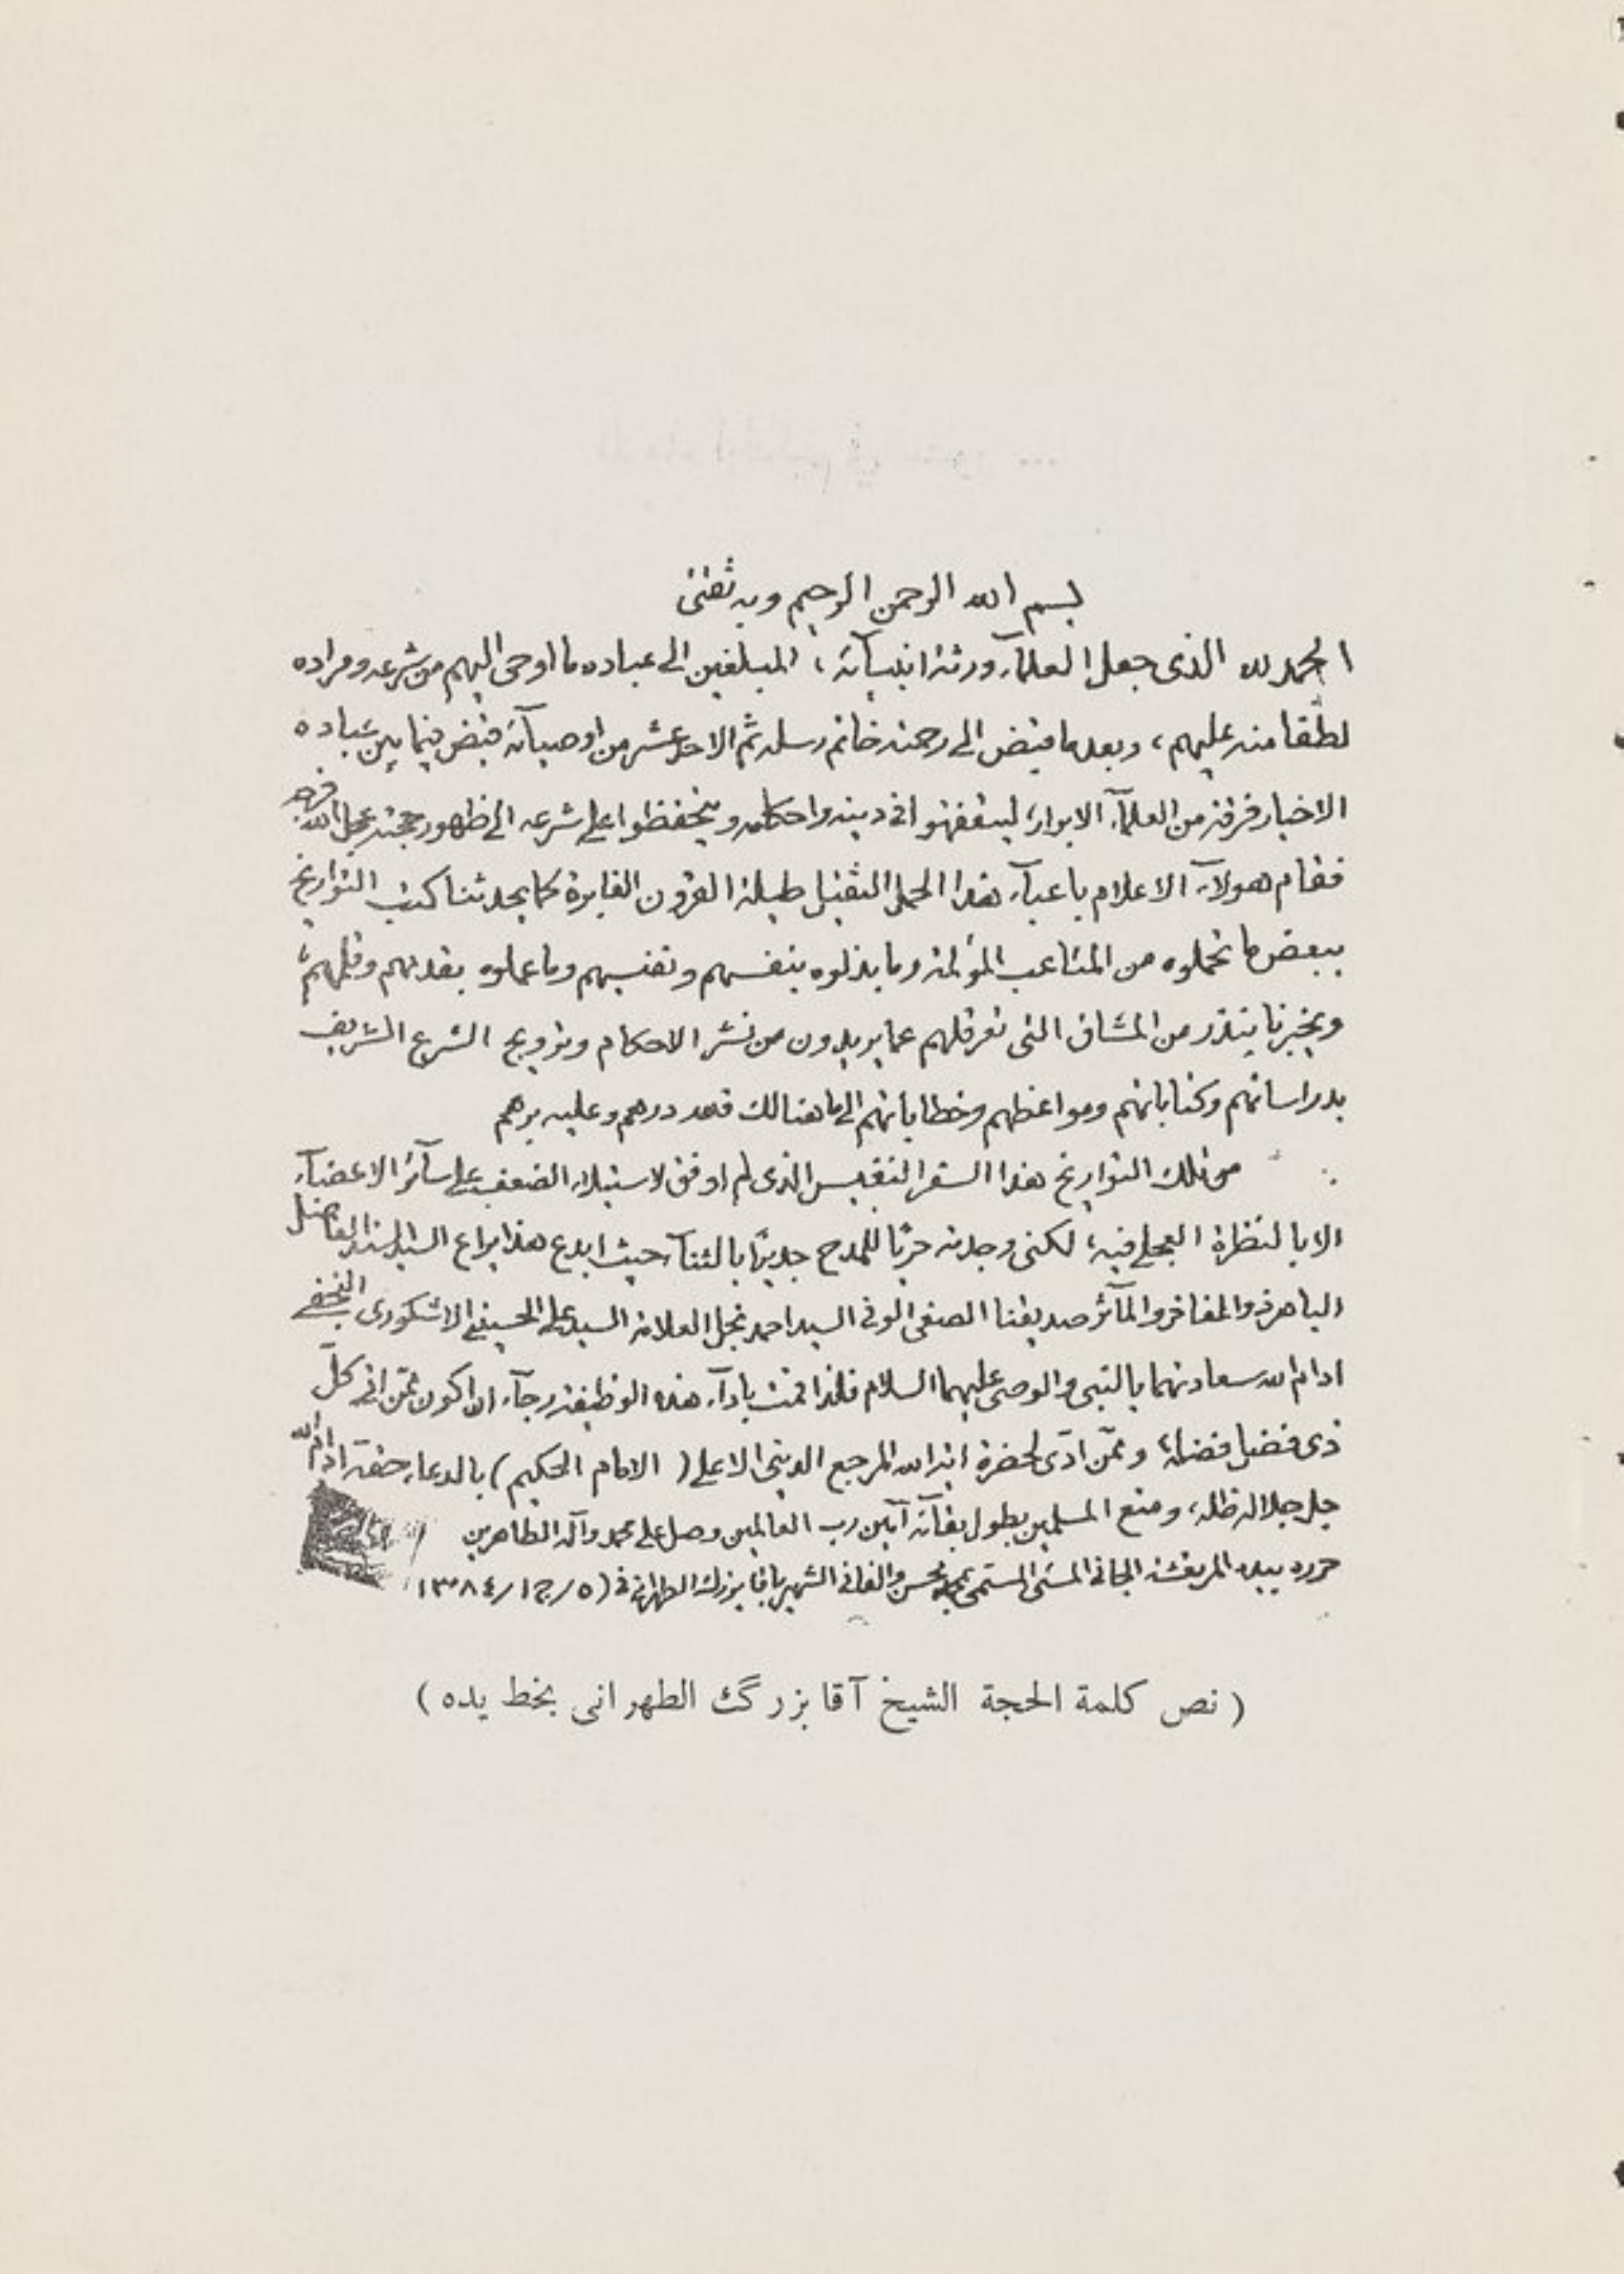 بسم الله الرحمن الرحيم وبه ثقتى
الحمد لله الذى جعل العلمآء ورثة انبيآئه، المبلغين الى عباده ما اوحى اليهم من شرعه ومراده
لطفا منه عليهم، وبعد ما قبض الى رحمته خاتم رسله ثم الاحد عشر من اوصيآئه قيض فيما بين عباده
الاخيار فرقة من العلمآء الابرار، ليتفقهوا فى دينه واحكامه ويتحفظوا على شرعه الى ظهور حجته عجل الله فرجه
فقام هولآء الاعلام باعبآء هذا الحمل الثقيل طيلة القرون الغابرة كما يحدثنا كتب التواريخ
ببعض ما تحملوه من المتاعب المؤلمة وما بذلوه بنفسهم ونفيسهم وما عملوه بقدمهم وقلمهم،
ويخبرنا بنذر من المشاق التى تعرقلهم عما يريدون من نشر الاحكام وترويج الشرع الشريف
بدراساتهم وكتاباتهم ومواعظهم وخطاباتهم الى ما هنالك فلله درهم وعليه برهم
من تلك التواريخ هذا السفر النفيس الذى لم اوفق لاستيلاء الضعف على سآئر الاعضآء
الا بالنظرة العجلى فيه، لكنى وجدته حريًّا للمدح جديرًا بالثنآء حيث ابدع هذا يراع السيد السند الفاضل
الباهر ذو المفاخر والمآثر صديقنا الصفى الوفى السيد احمد نجل العلامة السيد على الحسينى الاشكورى النجفى
ادام الله سعادتهما بالنبى والوصى عليهما السلام فلذا قمت بادآء هذه الوظيفة رجآء ان اكون ممن اتى كلّ
ذى فضل فضله، وممن ادّى لحضرة آية الله المرجع الدينى الاعلى (الامام الحكيم) بالدعاء حقه ادام الله
جل جلاله ظله، ومتع المسلمين بطول بقآئه آمين رب العالمين وصل على محمد وآله الطاهرين
حرره بيده المرتعشة الجانى المسئ المسمى بمحسن والفانى الشهير بآقا بزرك الطهرانى فى (٥/ج١/١٣٨٤
(نص كلمة الحجة الشيخ آقا بزرگ الطهرانى بخط يده)